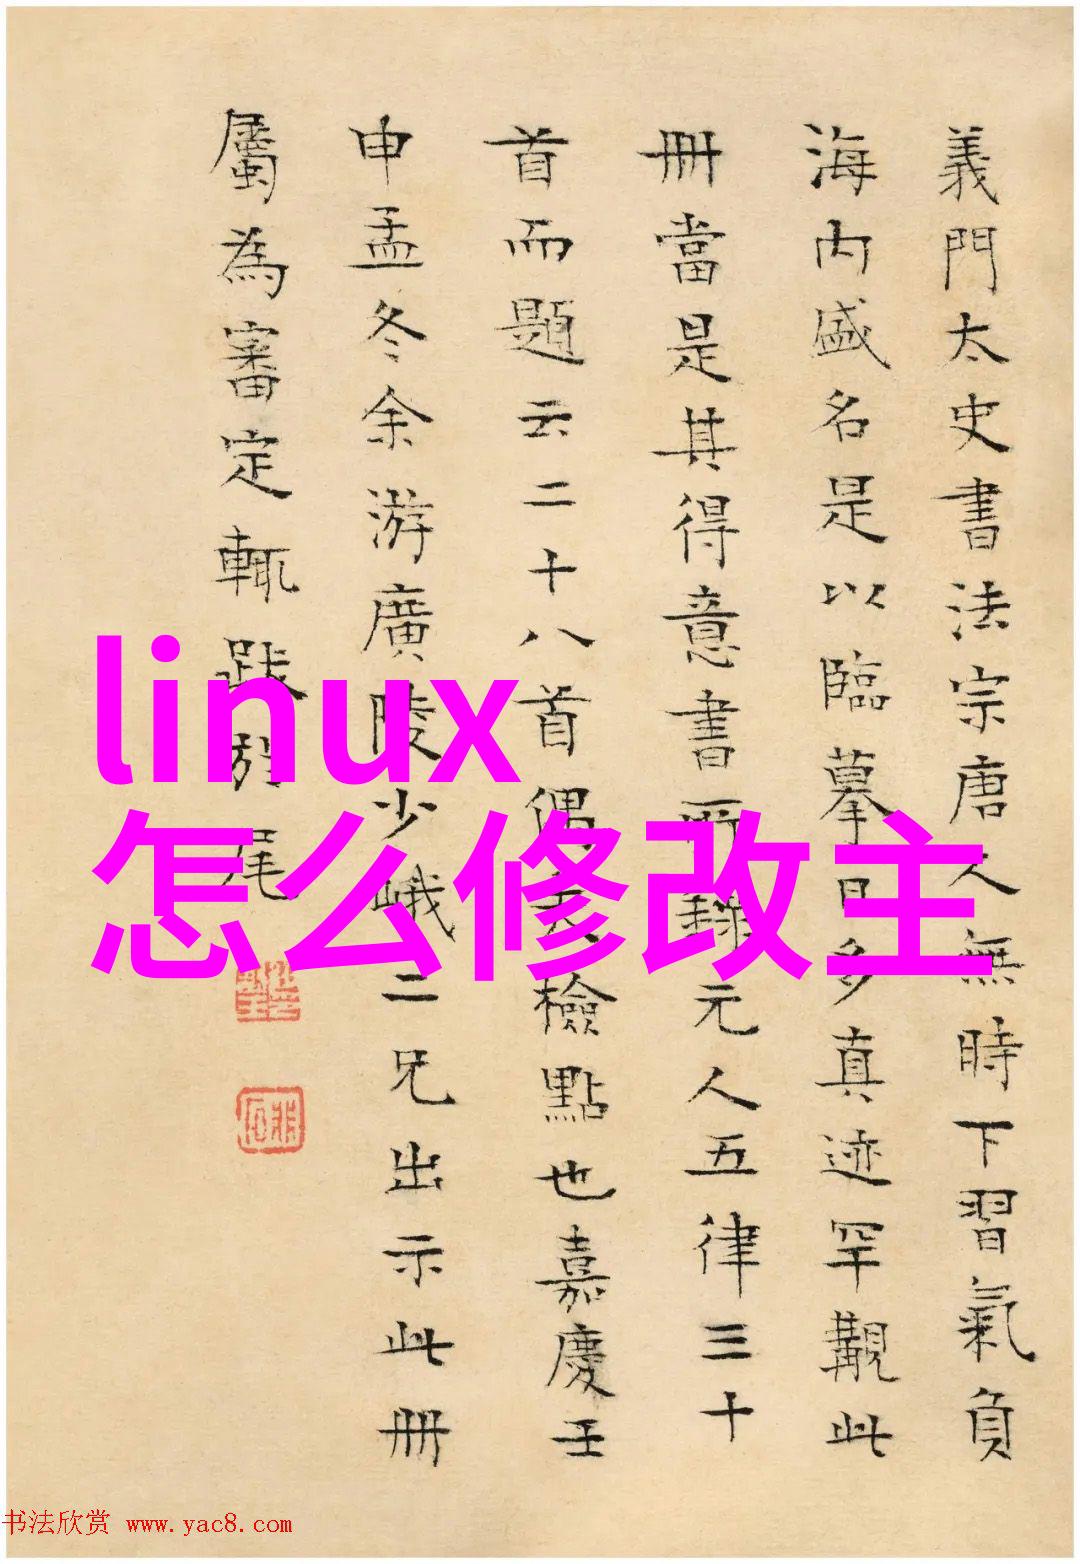 義門太史書法宗唐人無時下習氣負
海内盛名是以臨摹日多真迹罕覯此
冊當是其得意書所錄元人五律三十
首而題云二十八首偶失檢點也嘉慶壬
申孟冬余游廣陵少峨二兄出示此冊
屬為審定輒跋於尾
linux
怎么修改主
书法欣赏 www.yac8.com